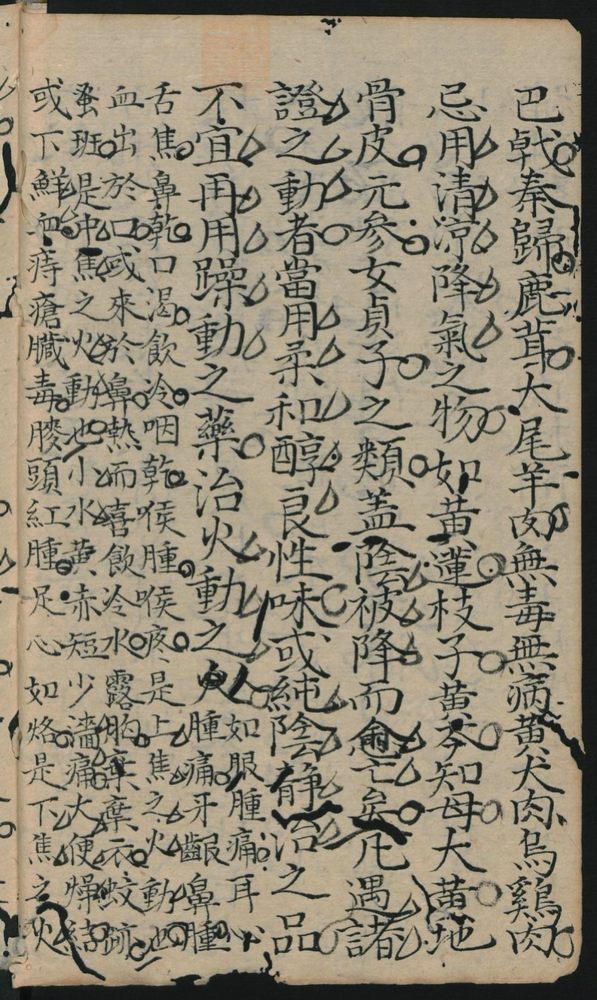 巴戟秦歸鹿茸大尾羊肉無毒無病黃犬肉烏雞肉
忌用清涼降氣之物如黃連枝子黃芩知母大黃地
骨皮元參女貞子之類蓋陰被降而愈亡矣凡遇諸
證之動者當用柔和醇良性味或純陰靜治之品
不宜再用躁動之藥治火動之火如眼腫痛耳
腫痛牙齦鼻腫
舌焦鼻乾口渴飲冷咽乾喉腫喉疼是上焦之火動也
血出於口或來於鼻熱而喜飲冷水露胸棄衣蚊跡
蚤斑是中焦之火動也小水黃赤短少濇痛大便燥結
或下鮮血痔瘡臟毒膀頭紅腫足心如烙是下焦之火